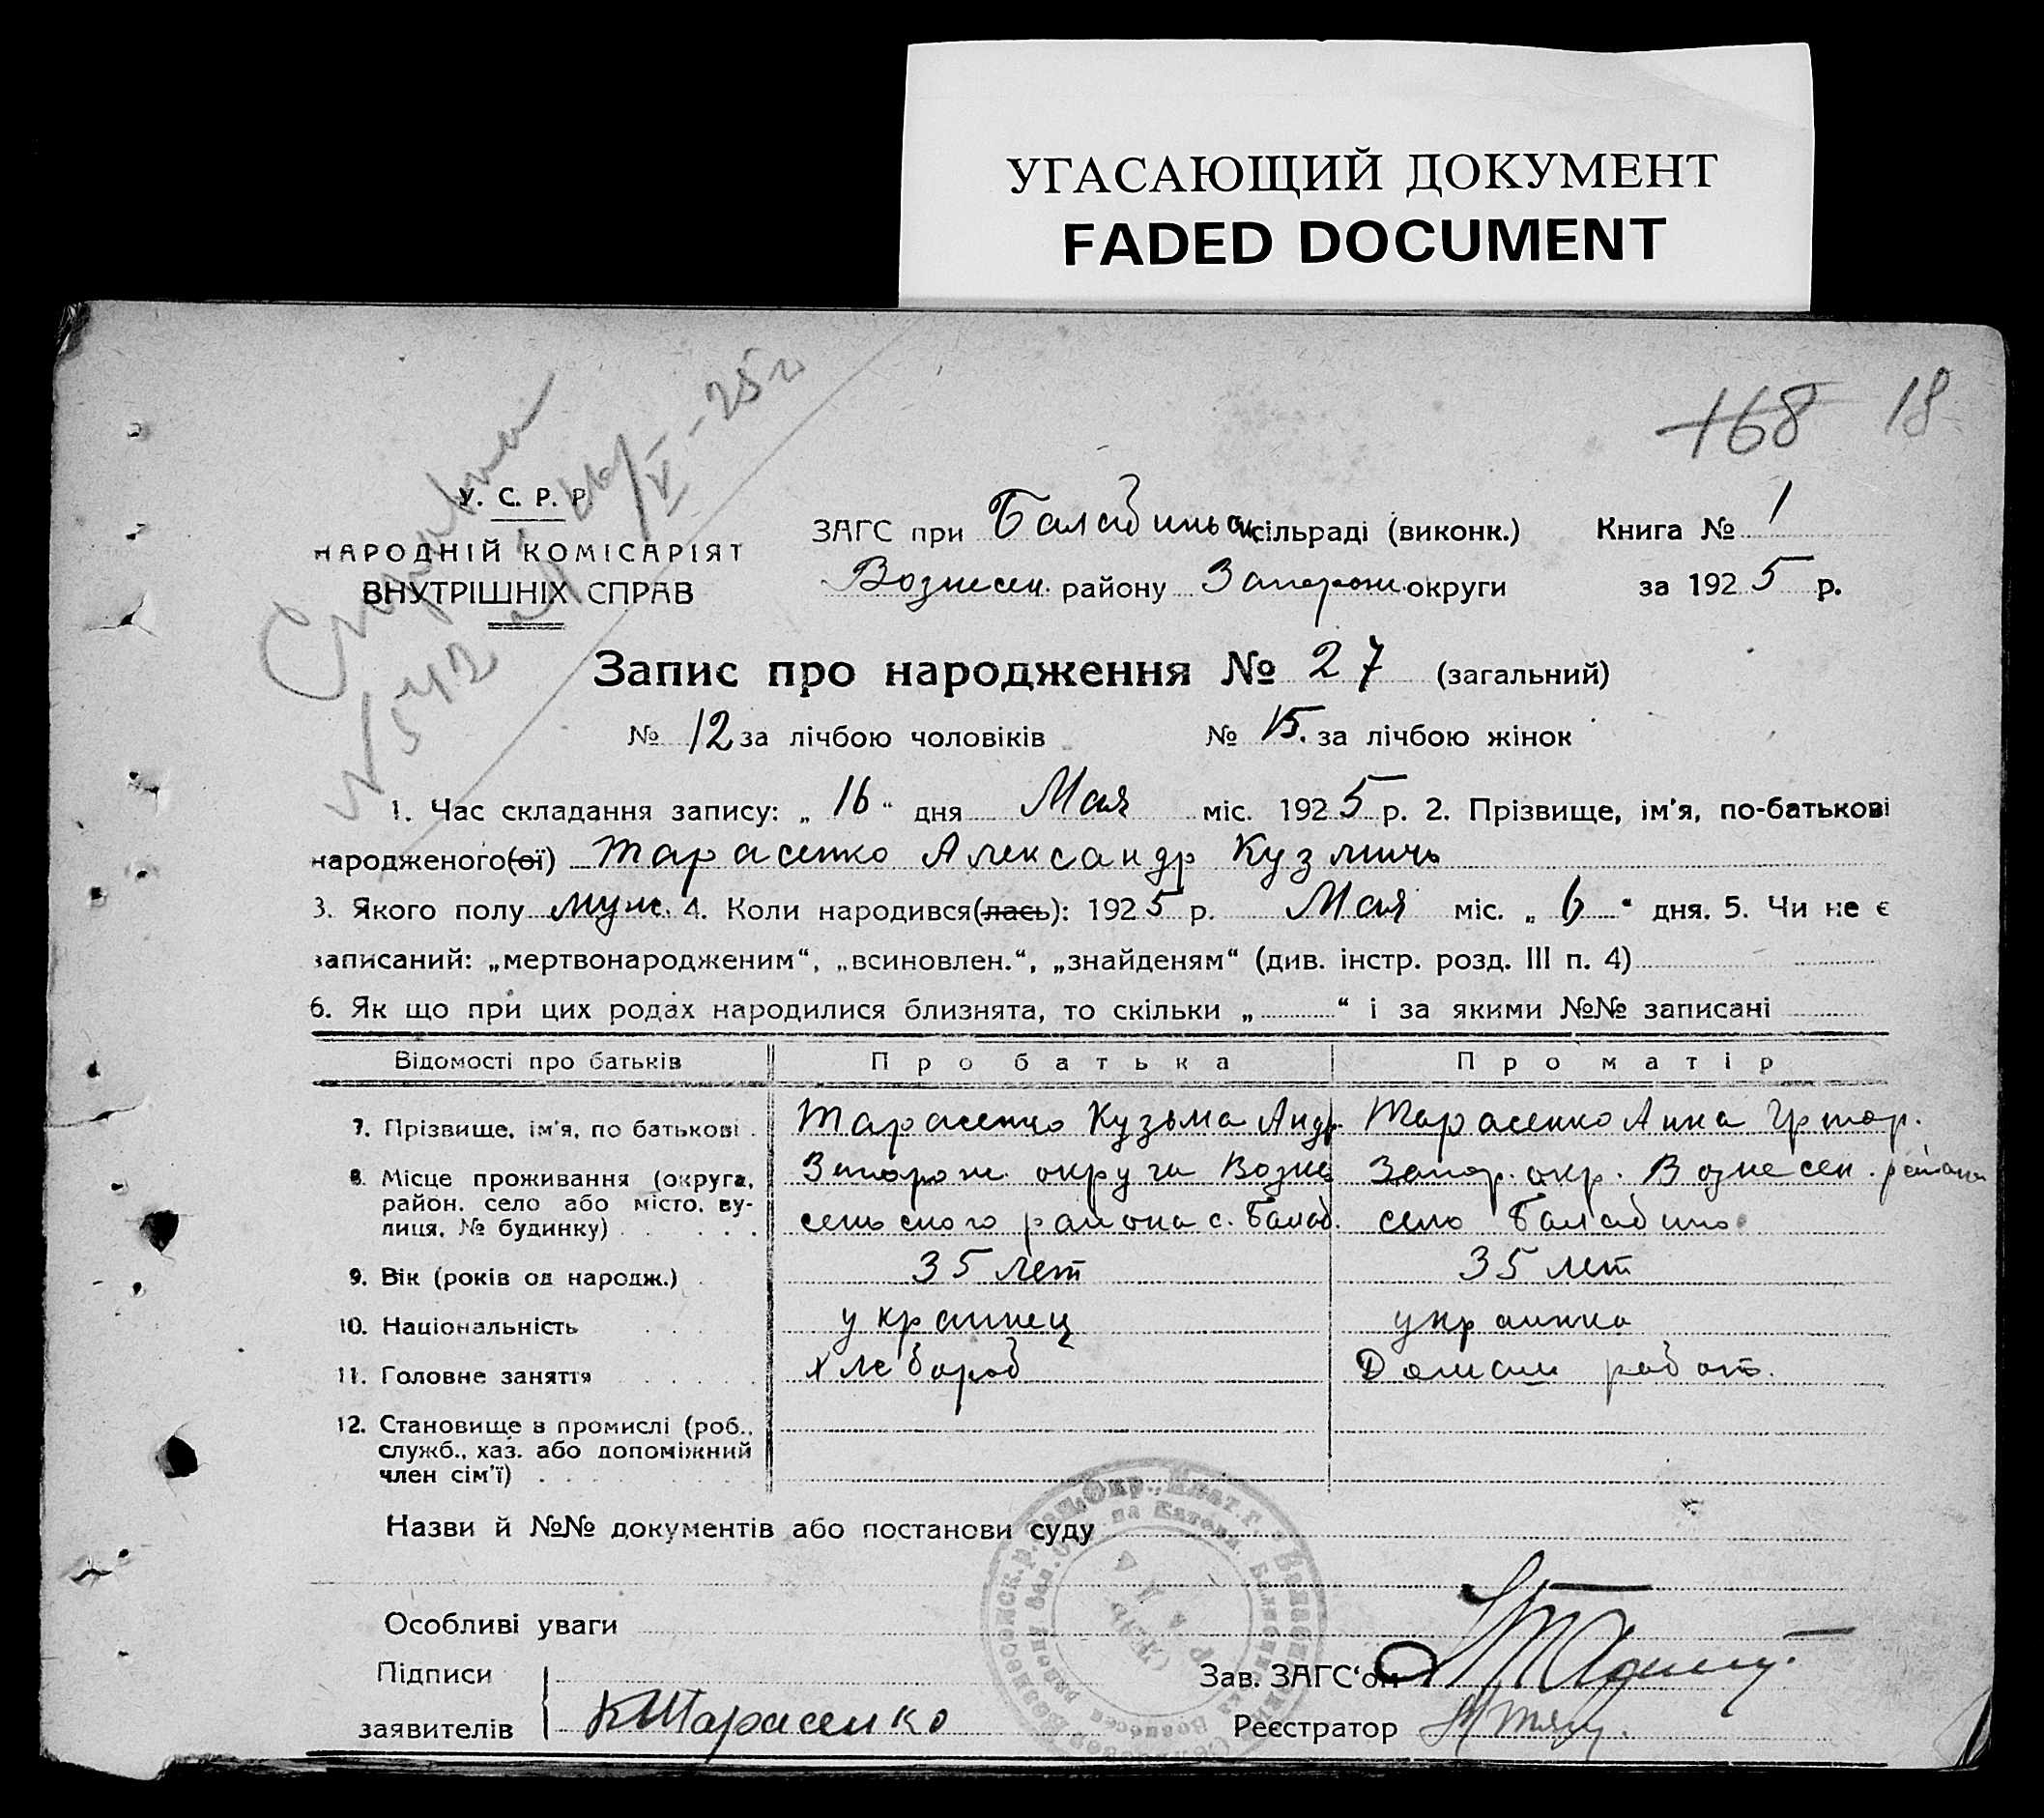 УГАСАЮЩИЙ ДОКУМЕНТ
FADED DOCUMENT
168 18
У. С. Р. Р.
НАРОДНІЙ КОМІСАРІЯТ
ВНУТРІШНІХ СПРАВ
Справка
N 542 16/V-25 г
ЗАГС при Балабиньск сільраді (виконк.) Книга № 1
Вознесен. району Запорож. округи за 1925 р.
Запис про народження № 27 (загальний)
№ 12 за лічбою чоловіків № 15. за лічбою жінок
1. Час складання запису: „ 16 “ дня Мая міс. 1925 р. 2. Прізвище, ім'я, по-батькові
народженого(ої) Тарасенко Александр Кузмичь
3. Якого полу муж. 4. Коли народився(лась): 1925 р. Мая міс. „ 6 “ дня. 5. Чи не є
записаний: „мертвонародженим“, „всиновлен.“, „знайденям“ (див. інстр. розд. III п. 4)
6. Як що при цих родах народилися близнята, то скільки „ “ і за якими №№ записані
Відомості про батьків Про батька Про матір
7. Прізвище, ім'я, по батькові . Тарасенко Кузьма Андр. Тарасенко Анна Григор.
8. Місце проживання (округа, Запорож. округи Возне Запор. окр. Вознесен. района
район, село або місто, ву- сеньского района с. Балаб. село Балабино
лиця, № будинку) . . . . .
9. Вік (років од народж.) . 35 лет 35 лет
10. Національність украинец украинка
11. Головне заняття хлебороб Домаш работ.
12. Становище в промислі (роб.,
служб., хаз. або допоміжний
член сім'ї) . . . . .
Назви й №№ документів або постанови суду
Особливі уваги
Підписи Зав. ЗАГС'ом
заявителів К Тарасенко Реєстратор